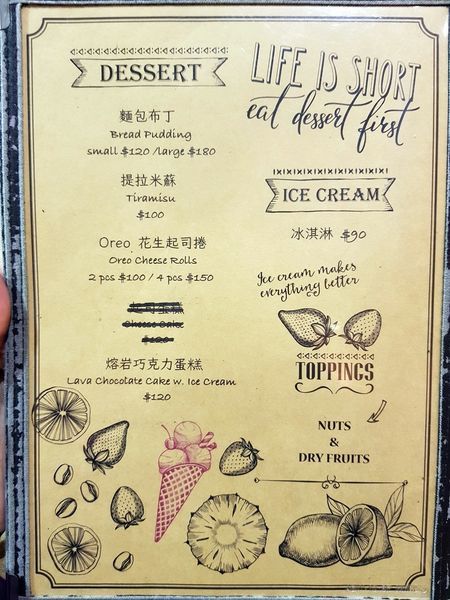 DESSERT
麵包布丁
Bread Pudding
small $120 /large $180
提拉米蘇
Tiramisu
$100
Oreo 花生起司捲
Oreo Cheese Rolls
2 pcs $100 / 4 pcs $150
Cheese Cake
$120
熔岩巧克力蛋糕
Lava Chocolate Cake w. Ice Cream
$120
LIFE IS SHORT
eat dessert first
ICE CREAM
冰淇淋 $90
Ice cream makes
everything better
TOPPINGS
NUTS
&
DRY FRUITS